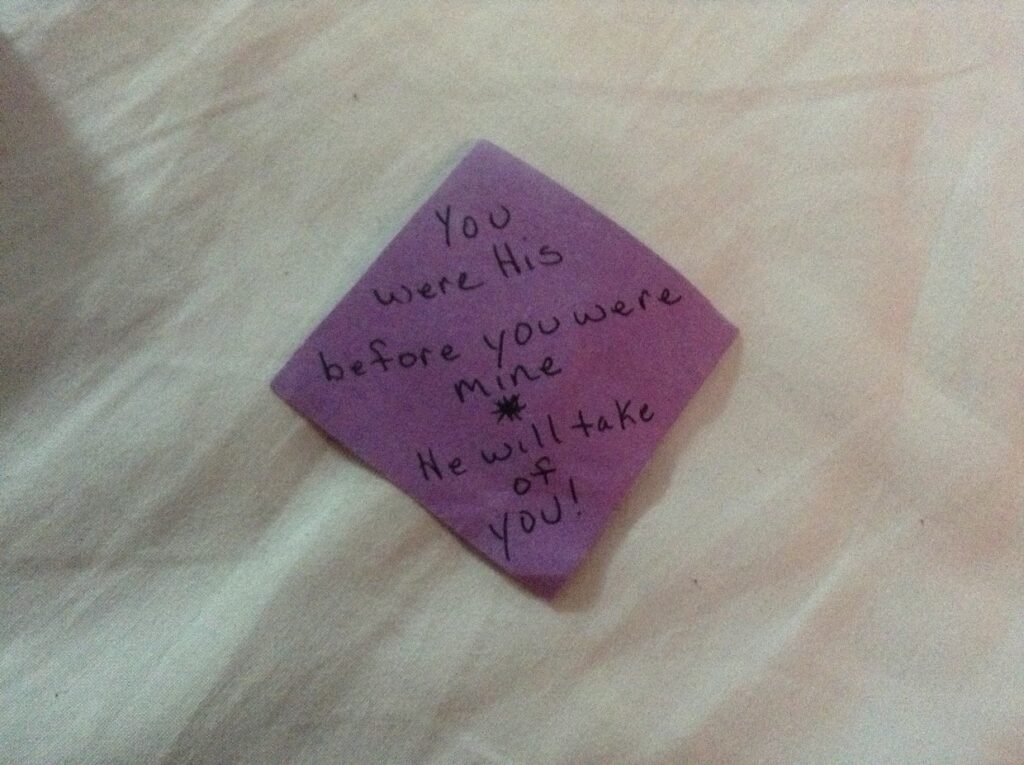 You
were His
before you were
mine
He will take
of
you!